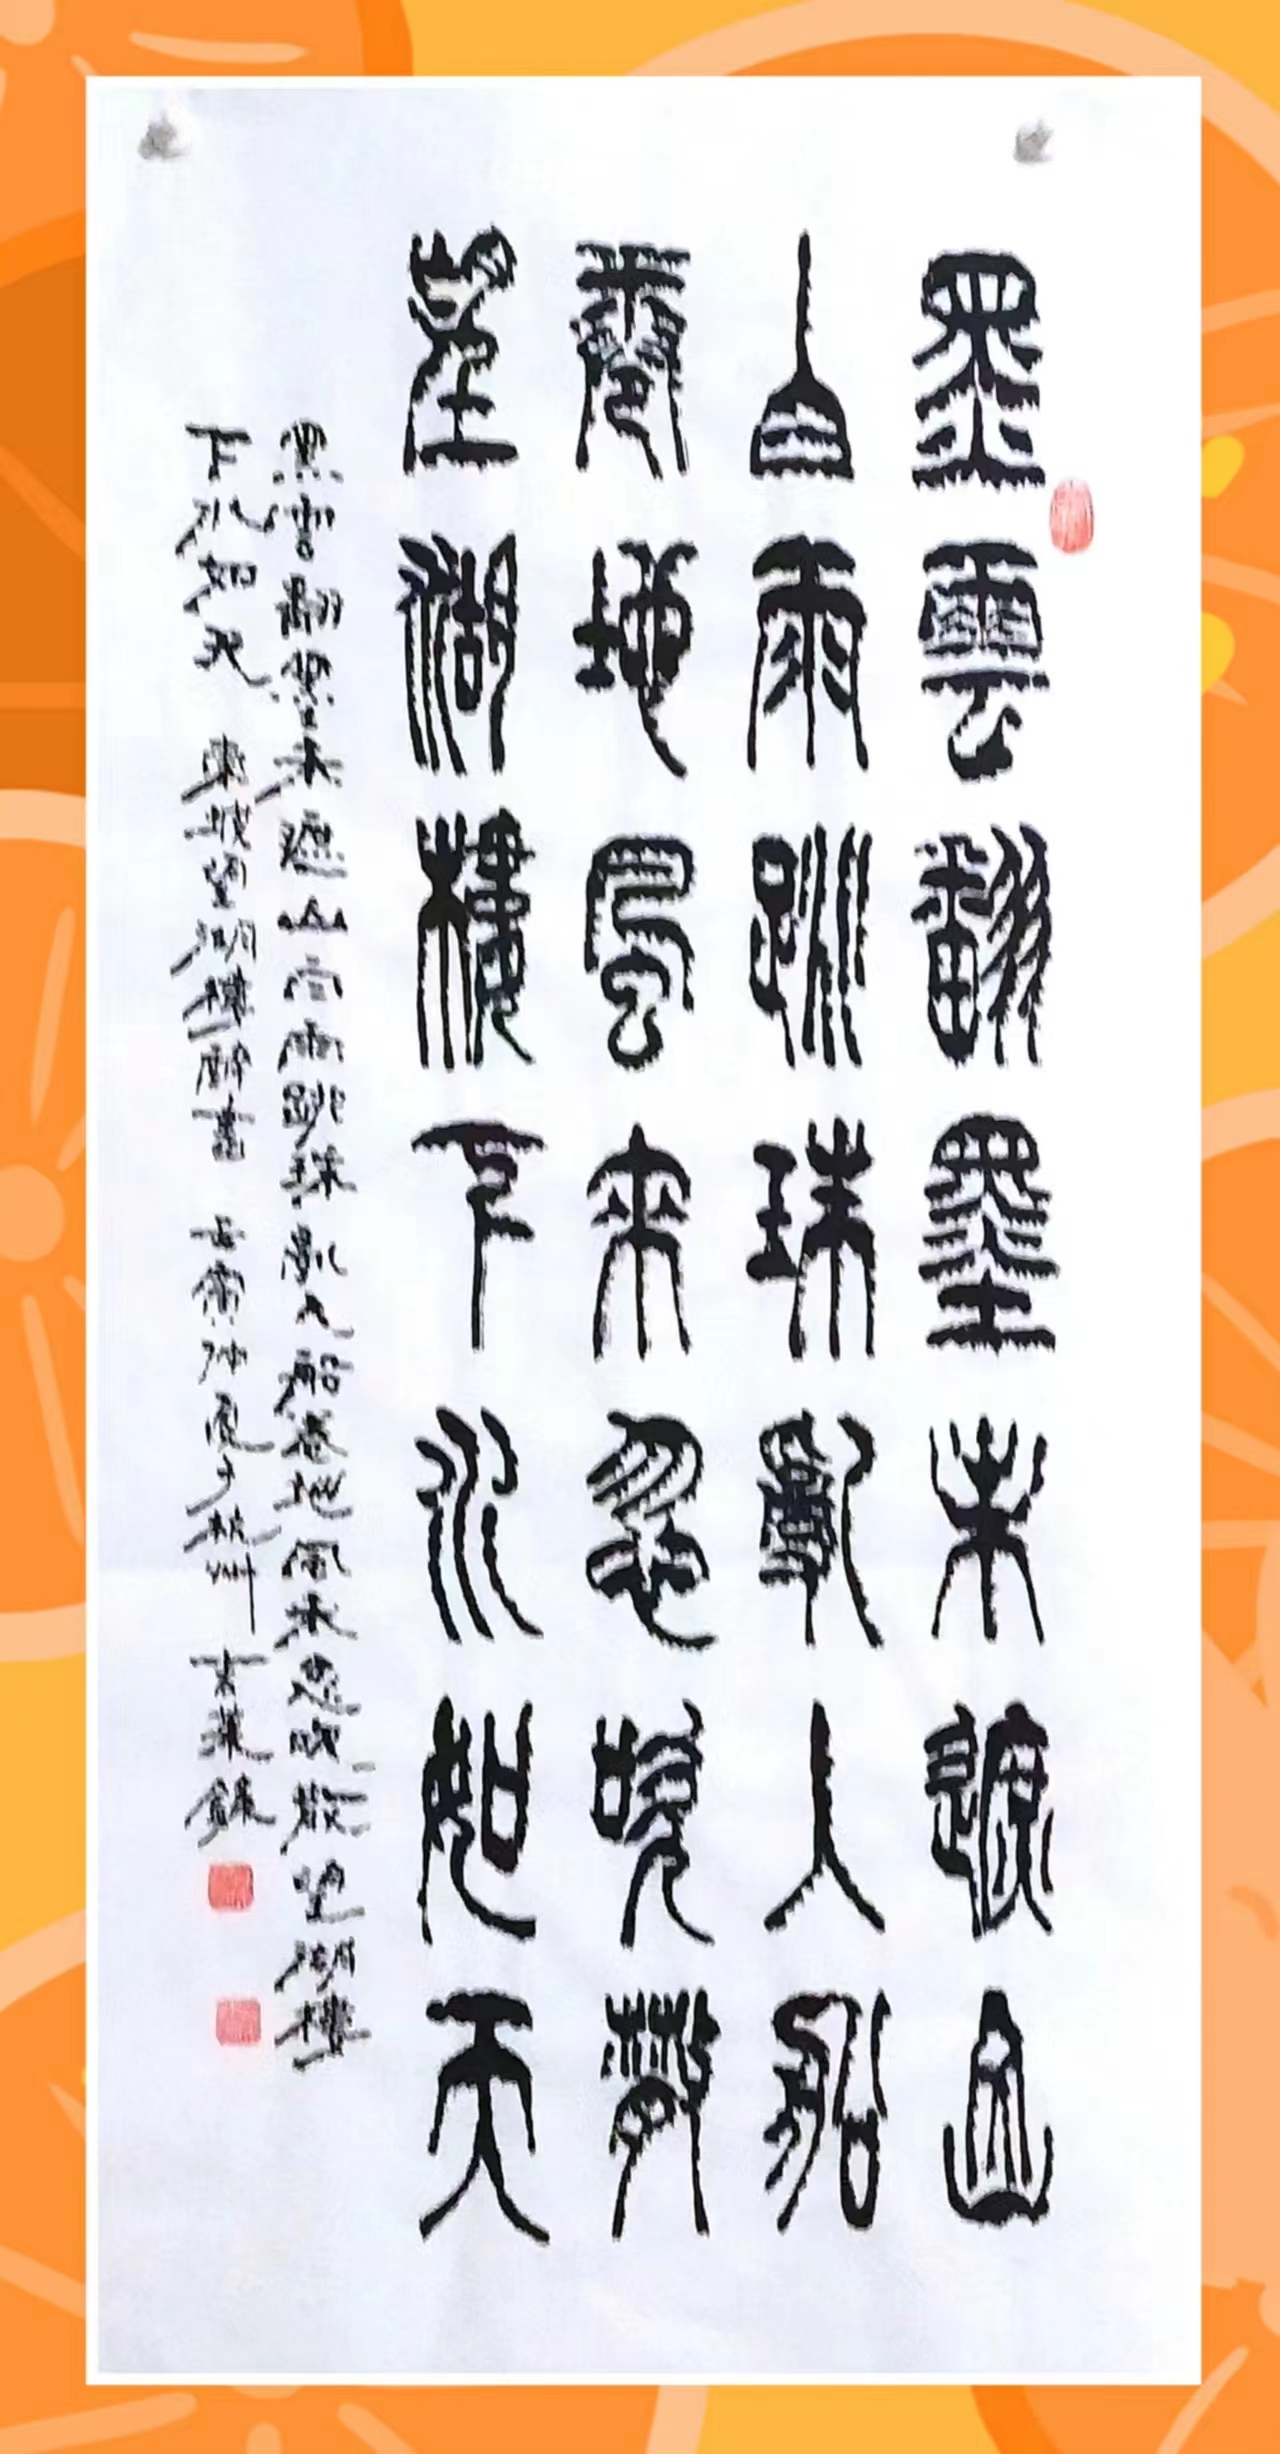 黑雲翻墨未遮山
白雨跳珠亂入船
卷地風來忽吹散
望湖樓下水如天
黑雲翻墨未遮山白雨跳珠亂入船卷地風來忽吹散望湖樓
下水如天 東坡望湖樓醉書 壬寅仲夏于杭州 錄